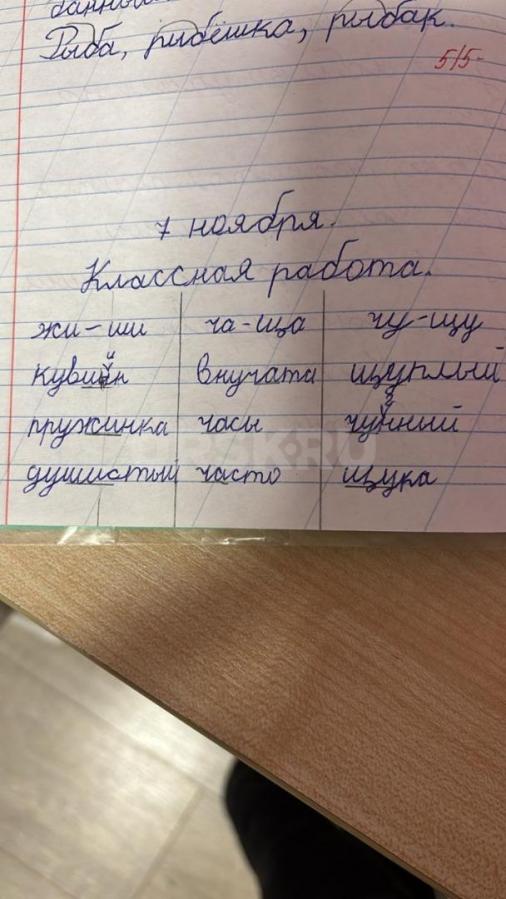 Рыба, рыбёшка, рыбак.
5/5-
7 ноября.
Классная работа.
жи-ши ча-ща чу-щу
кувшин внучата щуплый
пружинка часы чудный
душистый часто щука